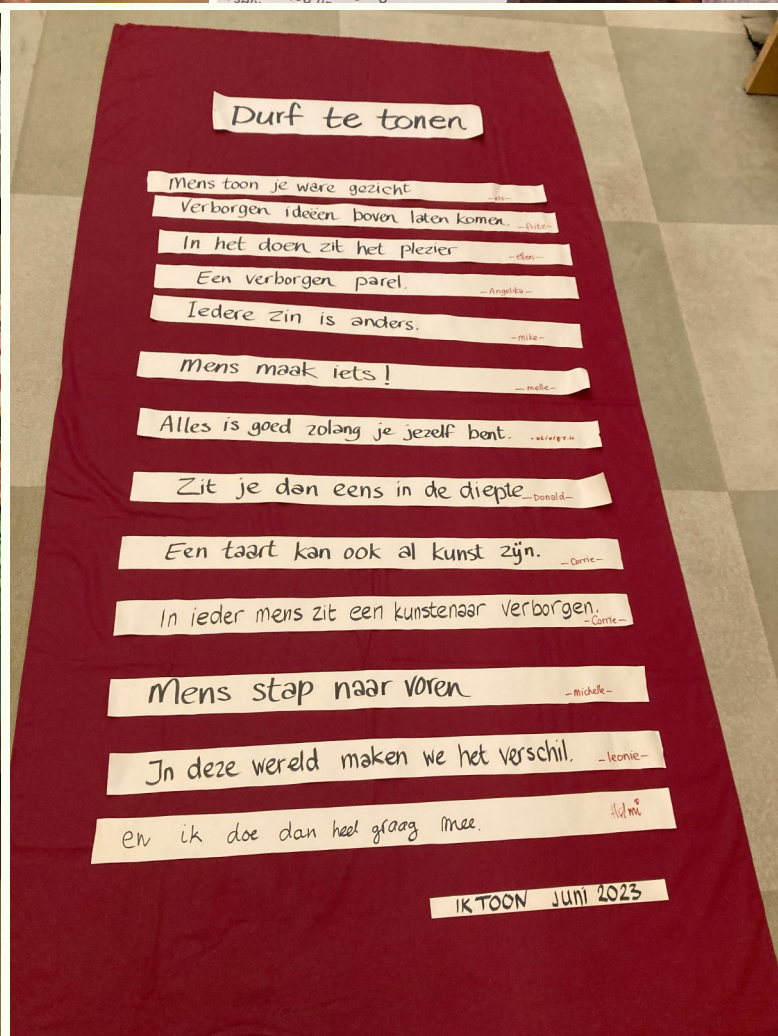 Durf te tonen
Mens toon je ware gezicht -els-
Verborgen ideëen boven laten komen. -fritz-
In het doen zit het plezier -ellen-
Een verborgen parel. -Angelika-
Iedere zin is anders. -mike-
Mens maak iets! -melle-
Alles is goed zolang je jezelf bent.
Zit je dan eens in de diepte -Donald-
Een taart kan ook al kunst zijn. -Corrie-
In ieder mens zit een kunstenaar verborgen. -Corrie-
Mens stap naar voren -Michelle-
In deze wereld maken we het verschil. -leonie-
en ik doe dan heel graag mee.
IK TOON Juni 2023